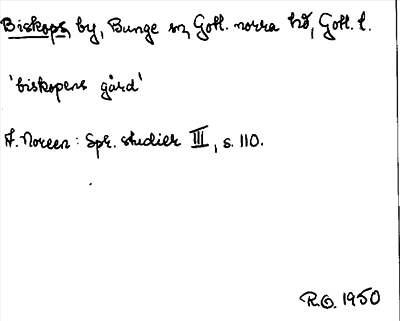 Biskops, by, Bunge sn, Gotl. norra hd, Gotl. l.
'biskopens gård'
A. Noreen: Spr. studier III, s. 110.
R.O. 1950